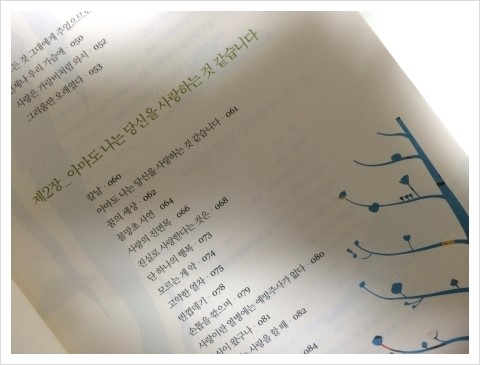 는 것 그대에게 주었으므로
우리 가슴에 · 050
사랑은 가랑비처럼 와서 · 052
그리움만 오래였다 · 053
제2장_ 아마도 나는 당신을 사랑하는 것 같습니다
칼날 · 060
아마도 나는 당신을 사랑하는 것 같습니다 · 061
꿈의 세상 · 062
물망초 사연 · 064
사랑의 진면목 · 066
진실로 사랑한다는 것은 · 068
단 하나의 행복 · 073
모르는 게 약 · 074
고약한 열차 · 075
빈껍데기 · 078
손톱을 깎으며 · 079
사랑이란 열병에는 예방주사가 없다 · 080
왔구나 · 081
는 사랑을 할 때 · 082
084